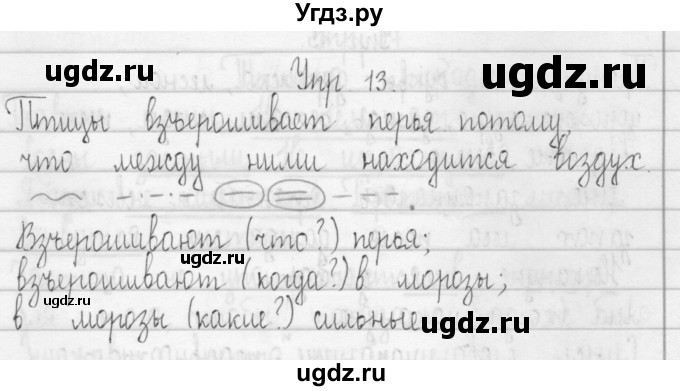 Угдз.ру
Упр 13.
ugdz.ru
ugdz.ru
ugdz.ru
Птицы взъерошивает перья потому,
что между ними находится воздух.
Взъерошивают (что?) перья;
ugdz.ru
взъерошивают (когда?) в морозы;
ugdz.ru
в морозы (какие?) сильные
ugdz.ru
ugdz.ru
ugdz.ru
ugdz.ru